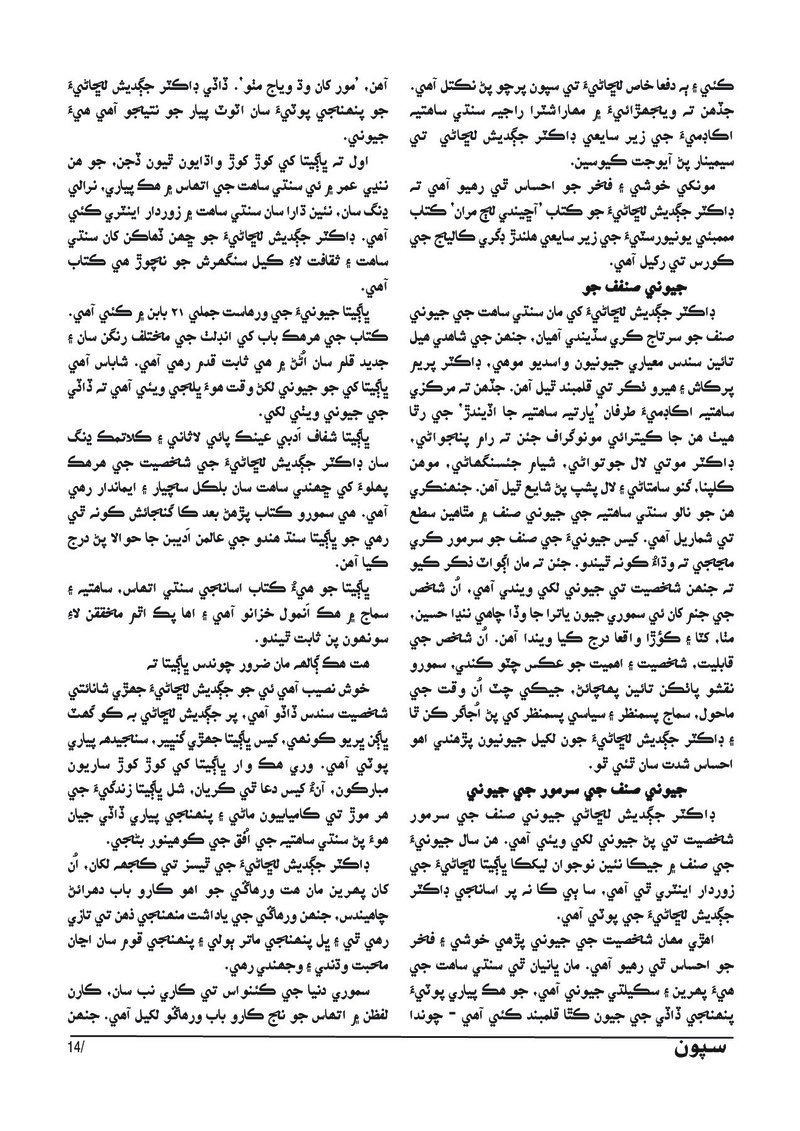 ڪئي ۽ ٻه دفعا خاص لڇاڻيءَ تي سپون پرچو پڻ نڪتل آهي.
جڏهن ته ويجهڙائيءَ ۾ مهاراشٽرا راجيه سنڌي ساهتيه
اڪاڊميءَ جي زير سايعي ڊاڪٽر جڳديش لڇاڻي تي
سيمينار پڻ آيوجت ڪيوسين.
مونکي خوشي ۽ فخر جو احساس ٿي رهيو آهي ته
ڊاڪٽر جڳديش لڇاڻيءَ جو ڪتاب 'آڇيندي لڄ مران' ڪتاب
ممبئي يونيورسٽيءَ جي زير سايعي هلندڙ ڊگري ڪاليج جي
ڪورس تي رکيل آهي.
جيوني صنفف جو
ڊاڪٽر جڳديش لڇاڻي کي مان سنڌي ساهت جي جيوني
صنف جو سرتاج ڪري سڏيندي آهيان، جنهن جي شاهدي هيل
تائين سندس معياري جيونيون واسديو موهي، ڊاڪٽر پريم
پرڪاش ۽ هيرو ٺڪر تي قلمبند ٿيل آهن. جڏهن ته مرڪزي
ساهتيه اڪاڊميءَ طرفان 'ڀارتيه ساهتيه جا اڏيندڙ' جي رٿا
هيٺ هن جا ڪيترائي مونوگراف جئن ته رام پنجواڻي،
ڊاڪٽر موتي لال جوتواڻي، شيام جئسنگهاڻي، موهن
ڪلپنا، گنو سامتاڻي ۽ لال پشپ پڻ شايع ٿيل آهن. جنهنڪري
هن جو نالو سنڌي ساهتيه جي جيوني صنف ۾ مٿاهين سطح
تي شماريل آهي. کيس جيونيءَ جي صنف جو سرمور ڪري
مڃجي ته وڌاءُ ڪونه ٿيندو. جئن ته مان اڳواٽ ذڪر ڪيو
ته جنهن شخصيت تي جيوني لکي ويندي آهي، اُن شخص
جي جنم کان ئي سموري جيون ياترا جا وڏا چاهي ننڍا حسين،
مٺا، کٽا ۽ ڪؤڙا واقعا درج ڪيا ويندا آهن. اُن شخص جي
قابليت، شخصيت ۽ اهميت جو عڪس چٽو ڪندي، سمورو
نقشو پاٺڪن تائين پهچائڻ، جيڪي چٽ اُن وقت جي
ماحول، سماج پسمنظر ۽ سياسي پسمنظر کي پڻ اُجاگر ڪن ٿا
۽ ڊاڪٽر جڳديش لڇاڻيءَ جون لکيل جيونيون پڙهندي اهو
احساس شدت سان ٿئي ٿو.
جيوني صنف جي سرمور جي جيوني
ڊاڪٽر جڳديش لڇاڻي جيوني صنف جي سرمور
شخصيت تي پڻ جيوني لکي ويئي آهي. هن سال جيونيءَ
جي صنف ۾ جيڪا نئين نوجوان ليکڪا ڀاڳيتا لڇاڻيءَ جي
زوردار اينٽري ٿي آهي، سا ٻي ڪا نه پر اسانجي ڊاڪٽر
جڳديش لڇاڻيءَ جي پوٽي آهي.
اهڙي مهان شخصيت جي جيوني پڙهي خوشي ۽ فخر
جو احساس ٿي رهيو آهي. مان ڀانيان ٿي سنڌي ساهت جي
هيءَ پهرين ۽ سڪيلڌي جيوني آهي، جو هڪ پياري پوٽيءَ
پنهنجي ڏاڏي جي جيون ڪٿا قلمبند ڪئي آهي - چوندا
آهن، 'مور کان وڌ وياج مٺو'. ڏاڏي ڊاڪٽر جڳديش لڇاڻيءَ
جو پنهنجي پوٽيءَ سان اٽوٽ پيار جو نتيجو آهي هيءَ
جيوني.
اول ته ڀاڳيتا کي کوڙ کوڙ واڌايون ٿيون ڏجن، جو هن
ننڍي عمر ۾ ئي سنڌي ساهت جي اتهاس ۾ هڪ پياري، نرالي
ڍنگ سان، نئين ڌارا سان سنڌي ساهت ۾ زوردار اينٽري ڪئي
آهي. ڊاڪٽر جڳديش لڇاڻيءَ جو ڇهن ڏهاڪن کان سنڌي
ساهت ۽ ثقافت لاءِ ڪيل سنگهرش جو نچوڙ هي ڪتاب
آهي.
ڀاڳيتا جيونيءَ جي ورهاست جملي ۲۱ بابن ۾ ڪئي آهي.
ڪتاب جي هرهڪ باب کي انڊلٺ جي مختلف رنگن سان ۽
جديد قلم سان اُڻڻ ۾ هي ثابت قدم رهي آهي. شاباس آهي
ڀاڳيتا کي جو جيوني لکڻ وقت هوءَ ڀلجي ويئي آهي ته ڏاڏي
جي جيوني ويٺي لکي.
ڀاڳيتا شفاف اَدبي عينڪ پائي لاثاني ۽ ڪلاتمڪ ڍنگ
سان ڊاڪٽر جڳديش لڇاڻيءَ جي شخصيت جي هرهڪ
پهلوءَ کي ڇهندي ساهت سان بلڪل سچيار ۽ ايماندار رهي
آهي. هي سمورو ڪتاب پڙهڻ بعد ڪا گنجائش ڪونه ٿي
رهي جو ڀاڳيتا سنڌ هندو جي عالمن اَديبن جا حوالا پڻ درج
ڪيا آهن.
ڀاڳيتا جو هيءُ ڪتاب اسانجي سنڌي اتهاس، ساهتيه ۽
سماج ۾ هڪ اَنمول خزانو آهي ۽ اها پڪ اٿم محققن لاءِ
سونهون پن ثابت ٿيندو.
هت هڪ ڳالهه مان ضرور چوندس ڀاڳيتا ته
خوش نصيب آهي ئي جو جڳديش لڇاڻيءَ جهڙي شانائتي
شخصيت سندس ڏاڏو آهي، پر جڳديش لڇاڻي به ڪو گهٽ
ڀاڳن ڀريو ڪونهي، کيس ڀاڳيتا جهڙي گنڀير، سنجيدهه پياري
پوٽي آهي. وري هڪ وار ڀاڳيتا کي کوڙ کوڙ ساريون
مبارڪون، آنءُ کيس دعا ٿي ڪريان، شل ڀاڳيتا زندگيءَ جي
هر موڙ تي ڪاميابيون ماڻي ۽ پنهنجي پياري ڏاڏي جيان
هوءَ پڻ سنڌي ساهتيه جي اُفق جي ڪوهينور بڻجي.
ڊاڪٽر جڳديش لڇاڻيءَ جي ٿيسز تي ڪجهه لکان، اُن
کان پهرين مان هت ورهاڱي جو اهو ڪارو باب دهرائڻ
چاهيندس، جنهن ورهاڱي جي ياداشت منهنجي ذهن تي تازي
رهي ٿي ۽ ڀل پنهنجي ماتر ٻولي ۽ پنهنجي قوم سان اڃان
محبت وڌندي ۽ وڃهندي رهي.
سموري دنيا جي ڪئنواس تي ڪاري نب سان، ڪارن
لفظن ۾ اتهاس جو نڄ ڪارو باب ورهاڱو لکيل آهي. جنهن
سپون
14/